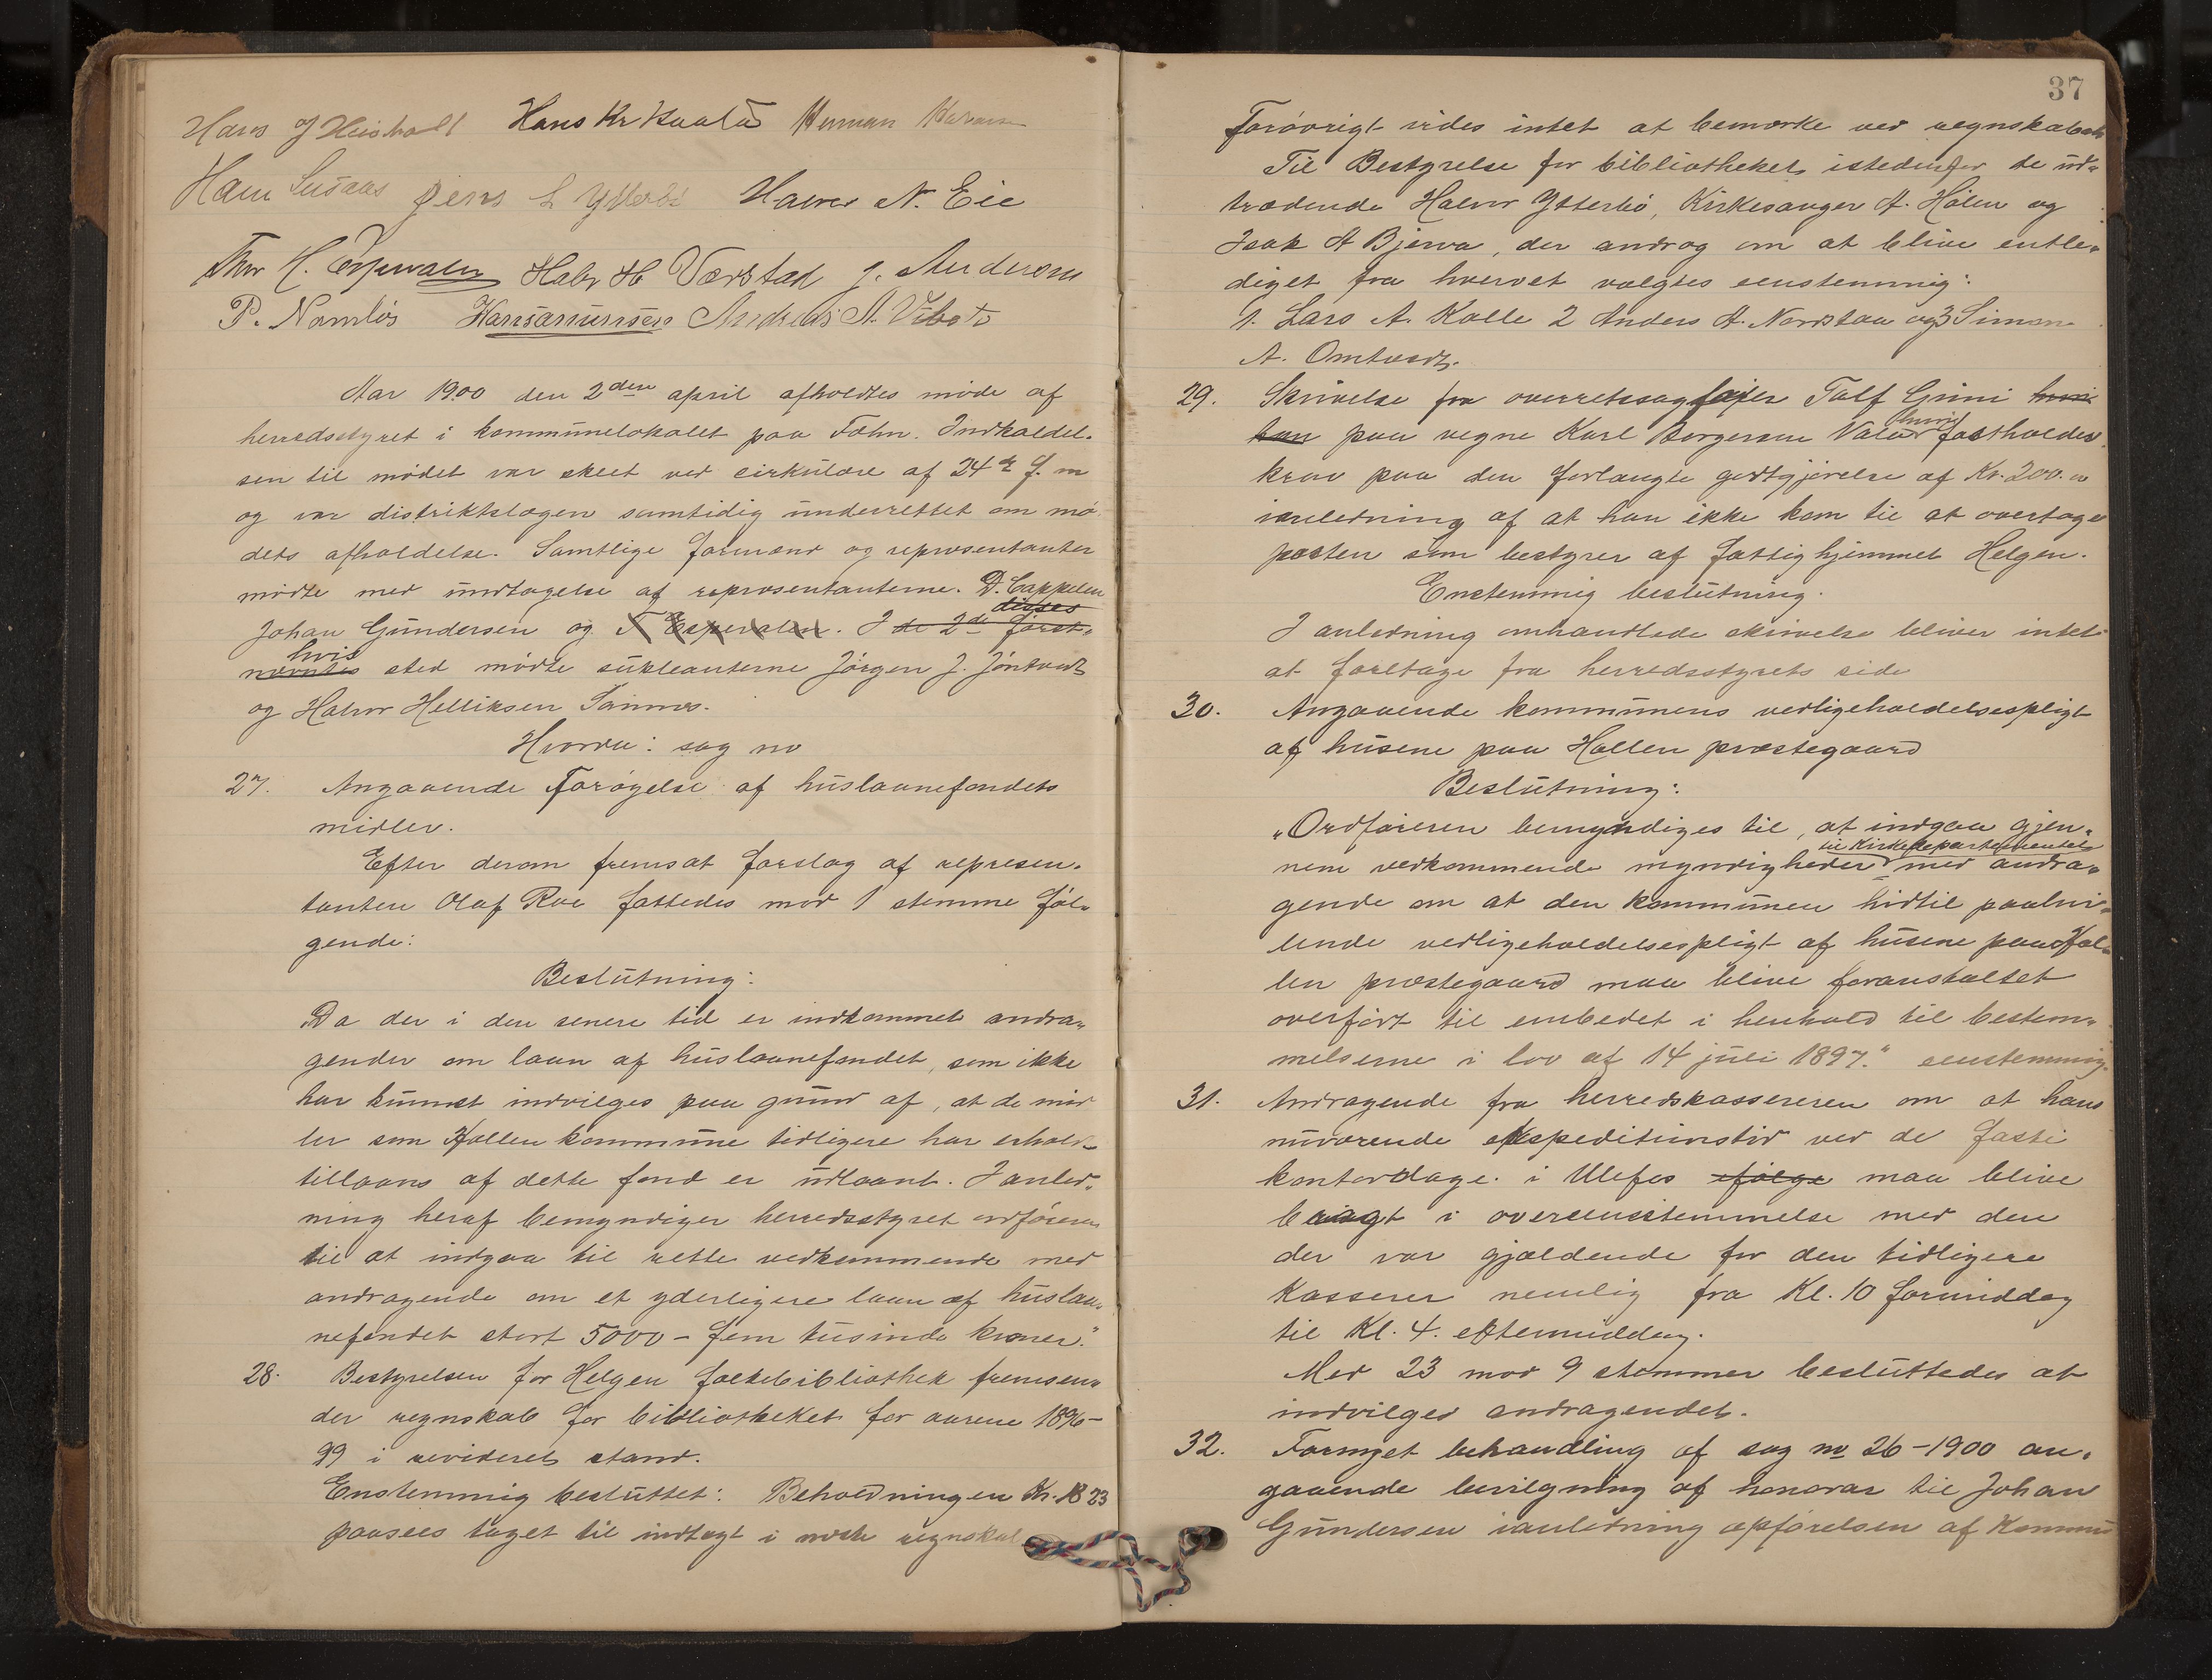 Hans Kr Kaasa Herman
Hans Jens L Ytterbø Halvor N. Eie
Thor H. Espevalen Halv H Værstad J. Andersen
P. Namløs Hans Amundsen Andreas A. Vibeto
Aar 1900 den 2den april afholdtes møde af
herredsstyret i kommunelokalet paa Fæhn. Indkaldel-
sen til mødet var skeet ved cirkulære af 24de f. m
og var distriktslægen samtidig underrettet om mø
dets afholdelse. Samtlige formænd og repræsentanter
mødte med undtagelse af repræsentanterne. D. Cappelen
disses
Johan Gundersen og T Espevalen. I de 2de først-
hvis
nævntes sted mødte supleanterne Jørgen J. Jøntvedt
og Halvor Helliksen Tinnes.
Hvorda: sag no
27. Angaaende Forøgelse af huslaanefondets
midler.
Efter derom fremsat forslag af represen-
tanten Olaf Roe fattedes mod 1 stemme føl-
gende:
Beslutning:
„Da der i den senere tid er indkommet andra-
gender om laan af huslaanefondet, som ikke
har kunnet indvilges paa grund af, at de mid
ler som Hollen kommune tidligere har erholdt
tillaans af dette fond er udlaant. I anled-
ning heraf bemyndiger herredsstyret ordføreren
til at indgaa til rette vedkommende med
andragende om et yderligere laan af huslaa-
nefondet stort 5000 – fem tusinde kroner."
28. Bestyrelsen for Helgen folkebibliothek fremsen-
der regnskab for bibliotheket for aarene 1896–
99 i revideret stand.
Enstemmig besluttet: Beholdningen Kr. 18 23
paasees taget til indtægt i næste regnskab
37
Forøvrigt vides intet at bemærke ved regnskabet
Til Bestyrelse for bibliotheket istedenfor de ud-
trædende Halvor Ytterbø, Kirkesanger A. Hølen og
Isak A Bjerva, der androg om at blive entle-
diget fra hvervet valgtes eenstemmig:
1. Lars A. Kolle 2 Anders A. Nordstaa og 3 Simon
A. Omtvedt.
29. Skrivelse fra overretssagfører Talf Grini hvori
hvori
han paa vegne Karl Borgersen Valer fastholder
krav paa den forlangte godtgjørelse af Kr. 200. i
anledning af at han ikke kom til at overtage
posten som bestyrer af fattighjemmet Helgen.
Enstemmig beslutning.
I anledning omhandlede skrivelse bliver intet
at foretage fra herredsstyrets side
30. Angaaende kommunens vedligeholdelsespligt
af husene paa Hollen præstegaard
Beslutning:
„Ordføreren bemyndiges til, at indgaa gjen-
til Kirkedepartementet
nem vedkommende myndigheder med andra-
gende om at den kommunen hidtil paahvi-
lende vedligeholdelsespligt af husene paa Hol-
len præstegaard maa blive foranstaltet
overført til embedet i henhold til bestem-
melserne i lov af 14 juli 1897." eenstemmig.
31. Andragende fra herredskassereren om at hans
nuværende ekspeditionstid ved de faste
kontordage i Ulefos ifølge maa blive
bragt i overeensstemmelse med den
der var gjældende for den tidligere
Kasserer nemlig fra Kl. 10 formiddag
til Kl. 4. eftermiddag.
Med 23 mod 9 stemmer besluttedes at
indvilges andragendet.
32. Fornyet behandling af sag no 26–1900 an-
gaaende bevilgning af honorar til Johan
Gundersen ianledning opførelsen af Kommu